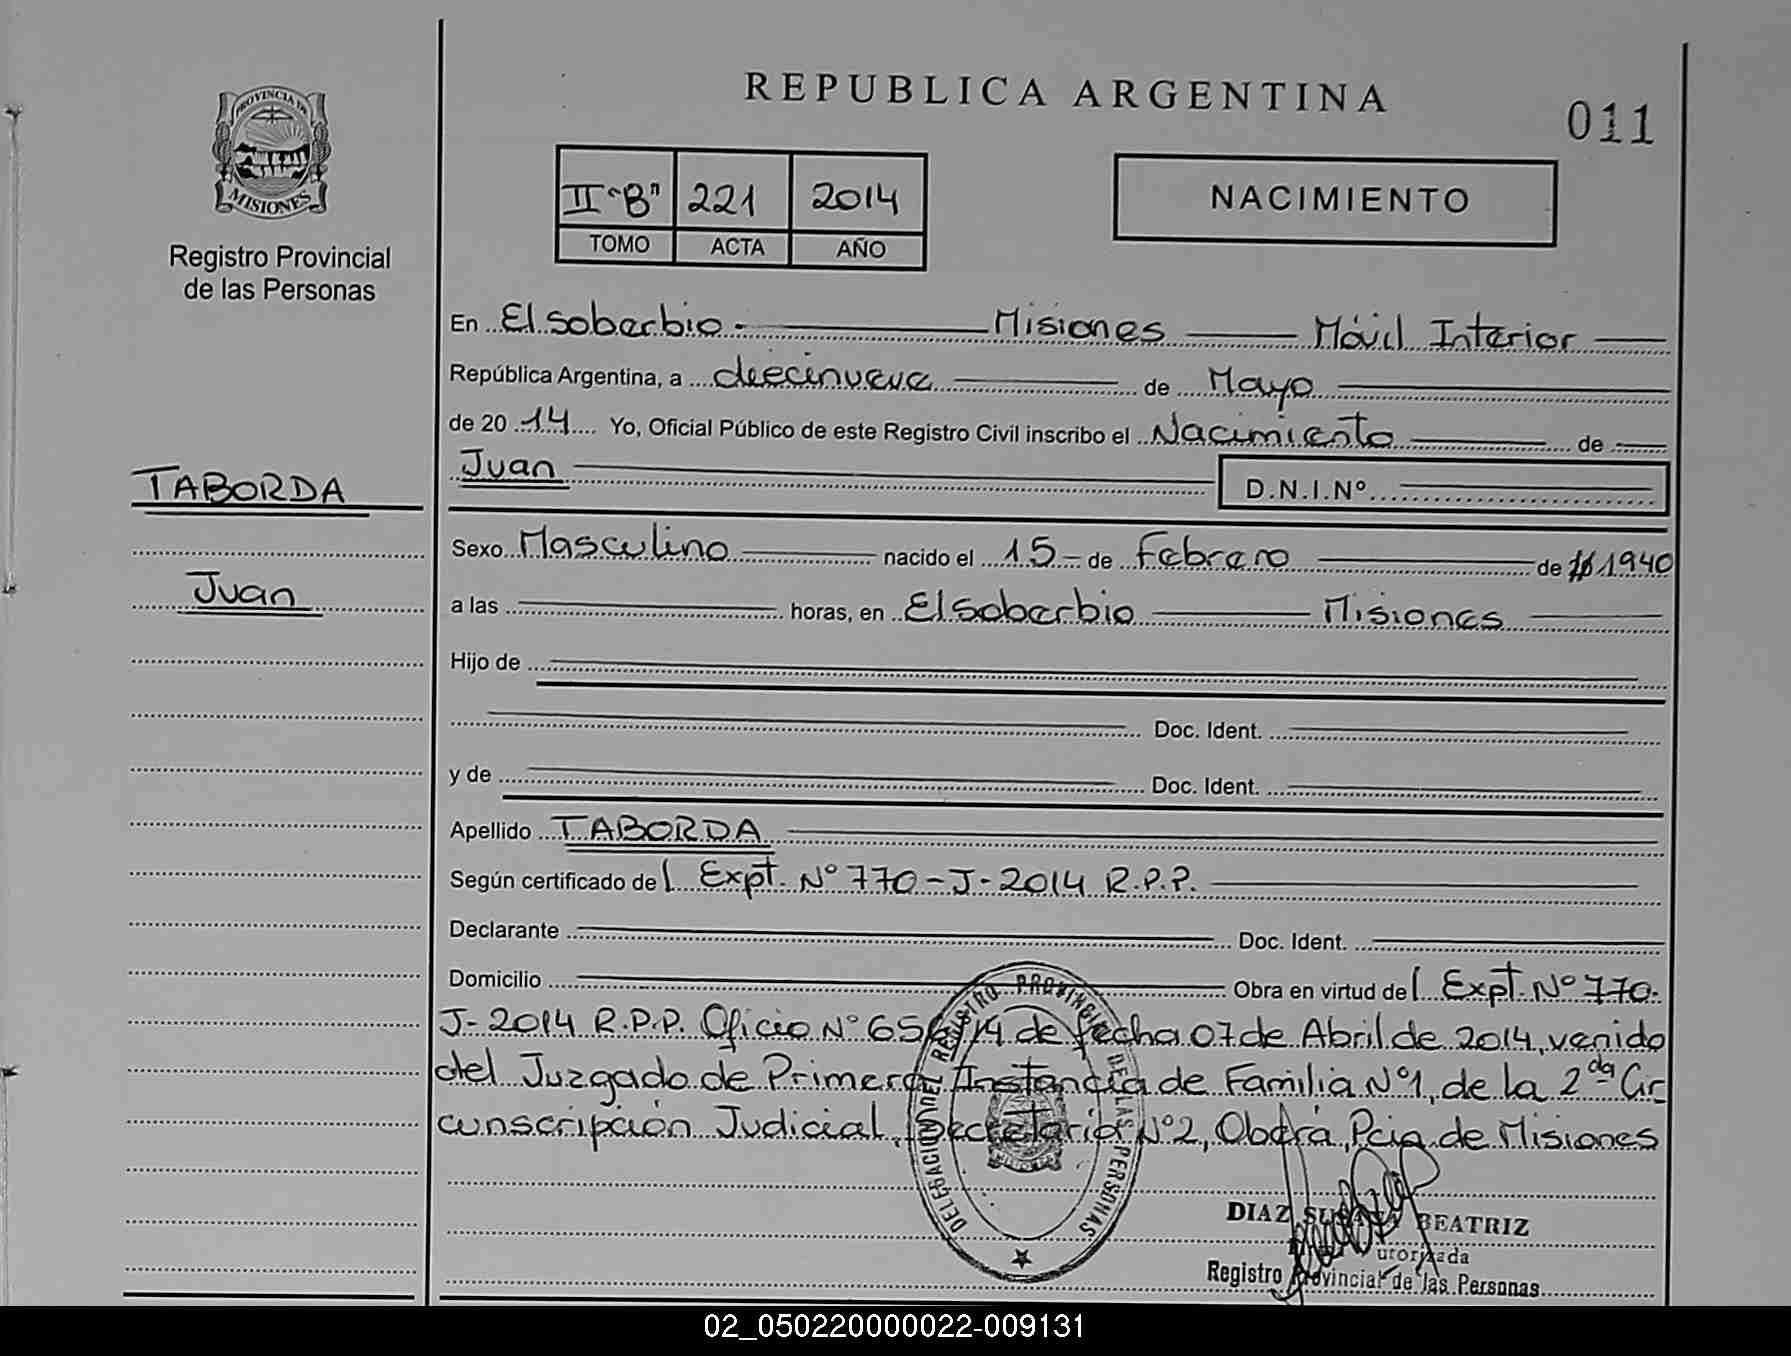 REPUBLICA ARGENTINA
011
PROVINCIA DE
MISIONES
Registro Provincial
de las Personas
II "B" 221 2014
TOMO ACTA AÑO
NACIMIENTO
En El soberbio.- Misiones Móvil Interior
República Argentina, a diecinueve de Mayo
de 20 14 Yo, Oficial Público de este Registro Civil inscribo el Nacimiento de
Juan
D.N.I.Nº
TABORDA
Juan
Sexo Masculino nacido el 15 - de Febrero de 1940
a las horas, en El soberbio Misiones
Hijo de
Doc. Ident.
y de Doc. Ident.
Apellido TABORDA
Según certificado de l Expt. Nº 770-J-2014 R.P.P.
Declarante Doc. Ident.
Domicilio Obra en virtud de l Expt. Nº 770-
J-2014 R.P.P. Oficio Nº /14 de fecha 07 de Abril de 2014, venido
del Juzgado de Primera Instancia de Familia Nº1, de la 2da Cir
cunscripción Judicial, Secretaría Nº2, Oberá, Pcia de Misiones
DELEGACION DEL REGISTRO PROVINCIAL DE LAS PERSONAS
DIAZ SUSANA BEATRIZ
utorizada
Registro Provincial de las Personas
02_050220000022-009131